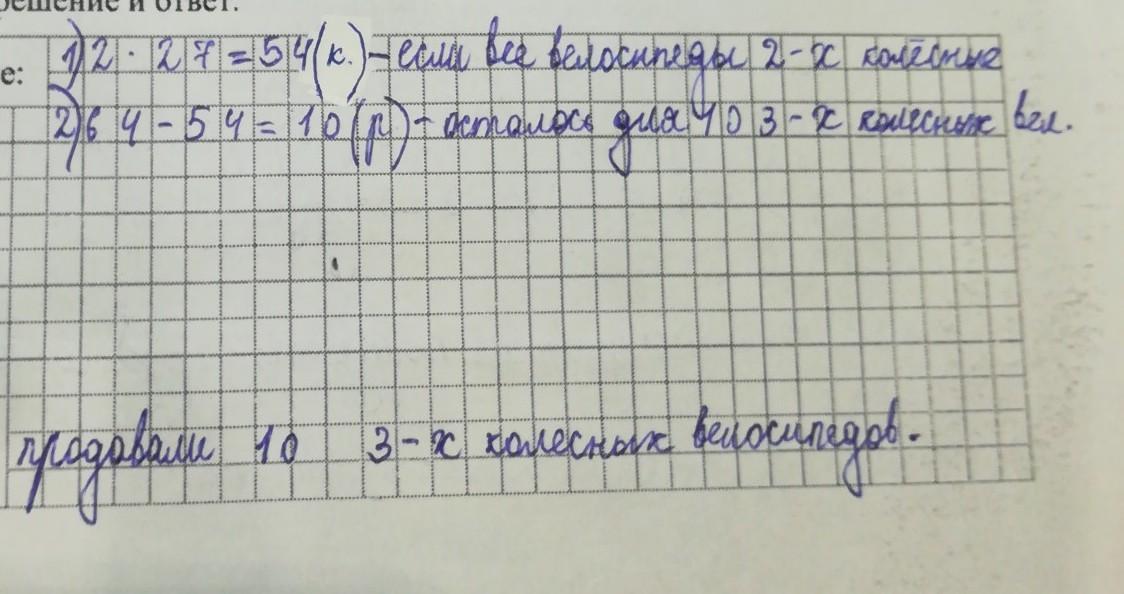 решение и ответ.
е: 1) 2 · 27 = 54 (к.) - если все велосипеды 2-х колёсные
2) 64 - 54 = 10 (р) - осталось для 3-х колесных вел.
продавали 10 3-х колесных велосипедов.